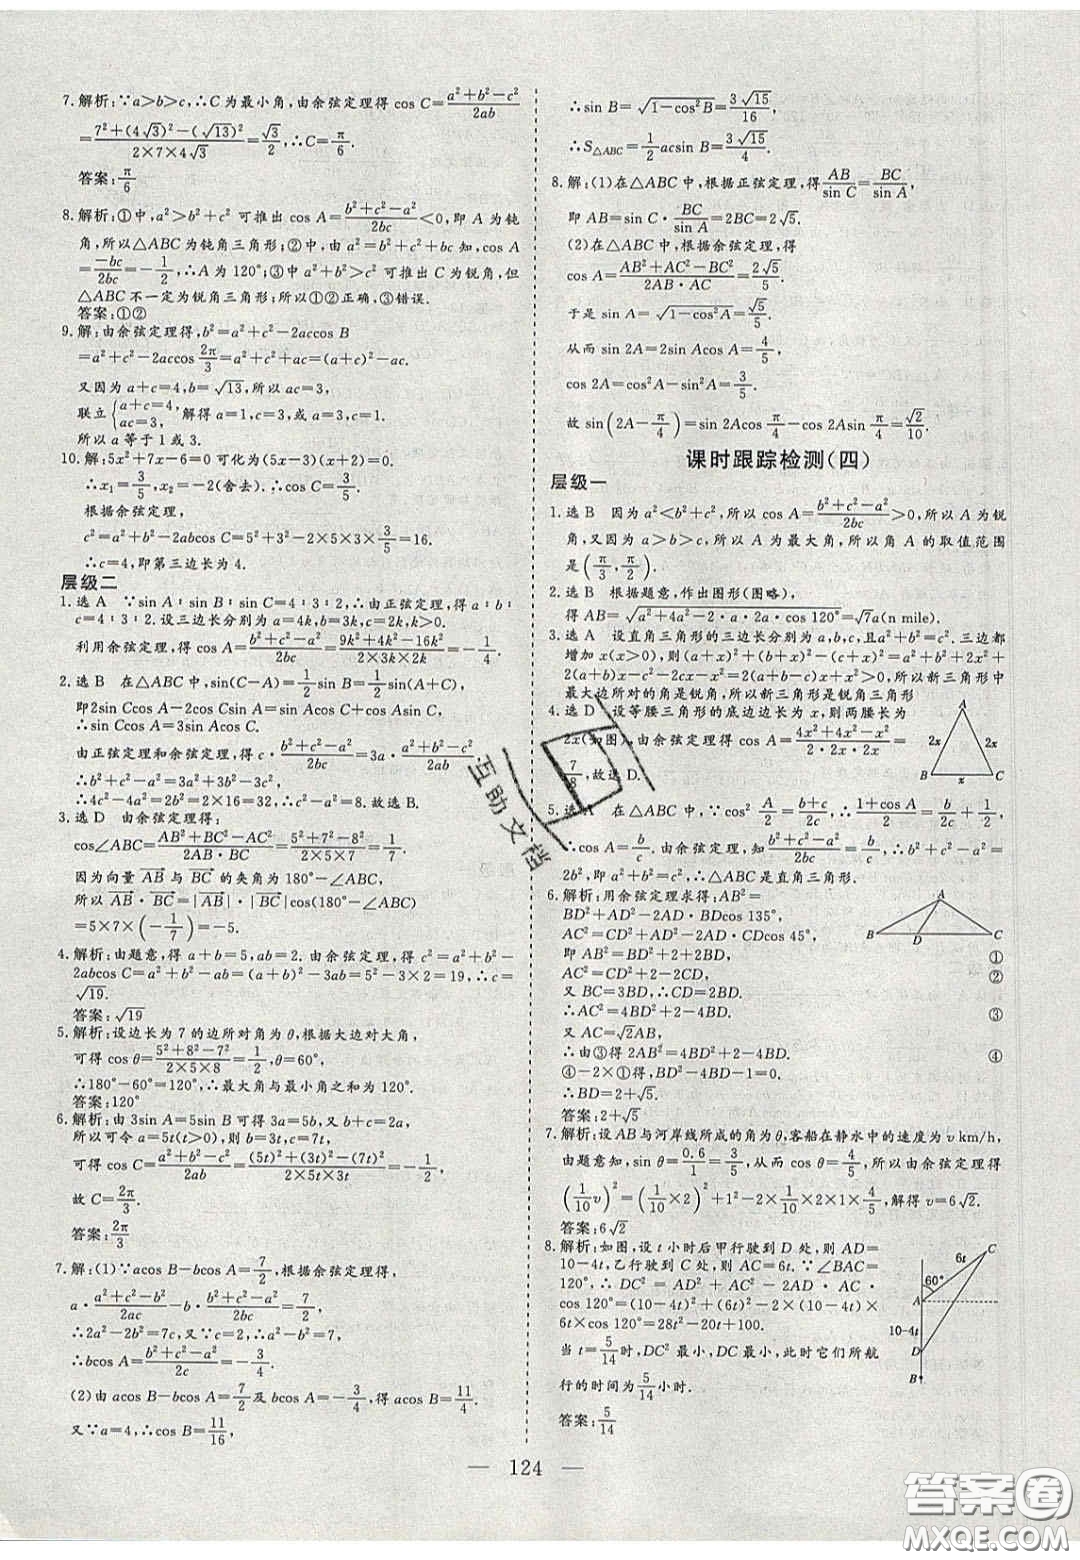 7.解析:∵a>b>c,∴C 为最小角,由余弦定理得 cos C=(a²+b²-c²)/2ab
=(7²+(4√3)²-(√13)²)/(2×7×4√3)=√3/2,∴C=π/6.
答案:π/6
8.解析:①中,a²>b²+c² 可推出 cos A=(b²+c²-a²)/2bc<0,即 A 为钝
角,所以△ABC 为钝角三角形;②中由 a²=b²+c²+bc 知,cos A
=-bc/2bc=-1/2,∴A 为 120°;③中 a²+b²>c² 可推出 C 为锐角,但
△ABC 不一定为锐角三角形;所以①②正确,③错误.
答案:①②
9.解:由余弦定理得,b²=a²+c²-2accos B
=a²+c²-2accos 2π/3=a²+c²+ac=(a+c)²-ac.
又因为 a+c=4,b=√13,所以 ac=3,
联立{a+c=4, ac=3, 解得 a=1,c=3,或 a=3,c=1.
所以 a 等于 1 或 3.
10.解:5x²+7x-6=0 可化为(5x-3)(x+2)=0.
∴x₁=3/5,x₂=-2(舍去).
根据余弦定理,
c²=a²+b²-2abcos C=5²+3²-2×5×3×3/5=16.
∴c=4,即第三边长为 4.
层级二
1.选 A ∵sin A∶sin B∶sin C=4∶3∶2,∴由正弦定理,得 a∶b∶
c=4∶3∶2.设三边长分别为 a=4k,b=3k,c=2k,k>0.
利用余弦定理,得 cos A=(b²+c²-a²)/2bc=(9k²+4k²-16k²)/(2×3k×2k)=-1/4.
2.选 B 在△ABC 中,sin(C-A)=1/2sin B=1/2sin(A+C),
即2sin Ccos A-2cos Csin A=sin Acos C+cos Asin C,
∴sin Ccos A=3sin Acos C.
由正弦定理和余弦定理,得 c·(b²+c²-a²)/2bc=3a·(a²+b²-c²)/2ab.
∴b²+c²-a²=3a²+3b²-3c².
∴4c²-4a²=2b²=2×16=32.∴c²-a²=8.故选 B.
3.选 D 由余弦定理得:
cos∠ABC=(AB²+BC²-AC²)/(2AB·BC)=(5²+7²-8²)/(2×5×7)=1/7.
因为向量 AB 与 BC 的夹角为180°-∠ABC,
所以 AB·BC=|AB|·|BC|cos(180°-∠ABC)
=5×7×(-1/7)=-5.
4.解析:由题意,得 a+b=5,ab=2. 由余弦定理,得 c²=a²+b²-
2abcos C=a²+b²-ab=(a+b)²-3ab=5²-3×2=19,∴c=
√19.
答案:√19
5.解析:设边长为 7 的边所对角为 θ,根据大边对大角,
可得 cos θ=(5²+8²-7²)/(2×5×8)=1/2,θ=60°,
∴180°-60°=120°,∴最大角与最小角之和为 120°.
答案:120°
6.解析:由 3sin A=5sin B 可得 3a=5b,又 b+c=2a,
所以可令 a=5t(t>0),则 b=3t,c=7t,
可得 cos C=(a²+b²-c²)/2ab=((5t)²+(3t)²-(7t)²)/(2×5t×3t)=-1/2,
故 C=2π/3.
答案:2π/3
7.解:(1)∵acos B-bcos A=7/2,根据余弦定理得,
a·(a²+c²-b²)/2ac-b·(b²+c²-a²)/2bc=7/2,
∴2a²-2b²=7c,又∵c=2,∴a²-b²=7,
∴bcos A=(b²+c²-a²)/2c=-3/4.
(2)由 acos B-bcos A=7/2及 bcos A=-3/4,得 acos B=11/4.
又∵a=4,∴cos B=11/16,
∴sin B=√(1-cos²B)=3√15/16,
∴S△ABC=1/2acsin B=3√15/4.
8.解:(1)在△ABC 中,根据正弦定理,得AB/sin C=BC/sin A,
即 AB=sin C·BC/sin A=2BC=2√5.
(2)在△ABC 中,根据余弦定理,得
cos A=(AB²+AC²-BC²)/(2AB·AC)=2√5/5.
于是 sin A=√(1-cos²A)=√5/5.
从而 sin 2A=2sin Acos A=4/5,
cos 2A=cos²A-sin²A=3/5.
故 sin(2A-π/4)=sin 2Acos π/4-cos 2Asin π/4=√2/10.
课时跟踪检测(四)
层级一
1.选 B 因为 a²<b²+c²,所以 cos A=(b²+c²-a²)/2bc>0,所以 A 为锐
角,又因为 a>b>c,所以 A 为最大角,所以角 A 的取值范围
是(π/3,π/2).
2.选 B 根据题意,作出图形(图略),
得 AB=√(a²+4a²-2·a·2a·cos 120°)=√7a(n mile).
3.选 A 设直角三角形的三边长分别为 a,b,c,且a²+b²=c². 三边都
增加 x(x>0),则(a+x)²+(b+x)²-(c+x)²=a²+b²+2x²+
2(a+b)x-c²-2cx-x²=2(a+b-c)x+x²>0,所以新三角形中
最大边所对的角是锐角,所以新三角形是锐角三角形
4.选 D 设等腰三角形的底边边长为 x,则两腰长为
2x(如图),由余弦定理得 cos A=(4x²+4x²-x²)/(2·2x·2x)=
7/8,故选 D.
A
2x
2x
B
x
C
5.选 A 在△ABC 中,∵cos² A/2=(b+c)/2c,∴(1+cos A)/2=b/2c+1/2,
∴cos A=b/c. 由余弦定理,知(b²+c²-a²)/2bc=b/c,∴b²+c²-a²=
2b²,即 a²+b²=c²,∴△ABC 是直角三角形.
6.解析:用余弦定理求得:AB²=
BD²+AD²-2AD·BDcos 135°,
AC²=CD²+AD²-2AD·CDcos 45°,
即 AB²=BD²+2+2BD, ①
AC²=CD²+2-2CD, ②
又 BC=3BD,∴CD=2BD.
∴AC²=4BD²+2-4BD. ③
又 AC=√2AB,
∴由③得 2AB²=4BD²+2-4BD. ④
④-2×①得,BD²-4BD-1=0.
∴BD=2+√5.
答案:2+√5
A
B
D
C
7.解析:设 AB 与河岸线所成的角为 θ,客船在静水中的速度为 v km/h,
由题意知,sin θ=0.6/1=3/5,从而 cos θ=4/5,所以由余弦定理得
(1/10v)²=(1/10×2)²+1²-2×1/10×2×1×4/5,解得 v=6√2.
答案:6√2
8.解析:如图,设 t 小时后甲行驶到 D 处,则 AD=
10-4t,乙行驶到 C 处,则 AC=6t. ∵∠BAC=
120°,∴DC²=AD²+AC²-2AD·AC·
cos 120°=(10-4t)²+(6t)²-2×(10-4t)×
6t×cos 120°=28t²-20t+100.
当 t=5/14时,DC² 最小,DC 最小,此时它们所航
行的时间为5/14小时.
答案:5/14
C
6t
60°
A
10-4t
D
B
124
互助文档
答案圈
MXQE.COM